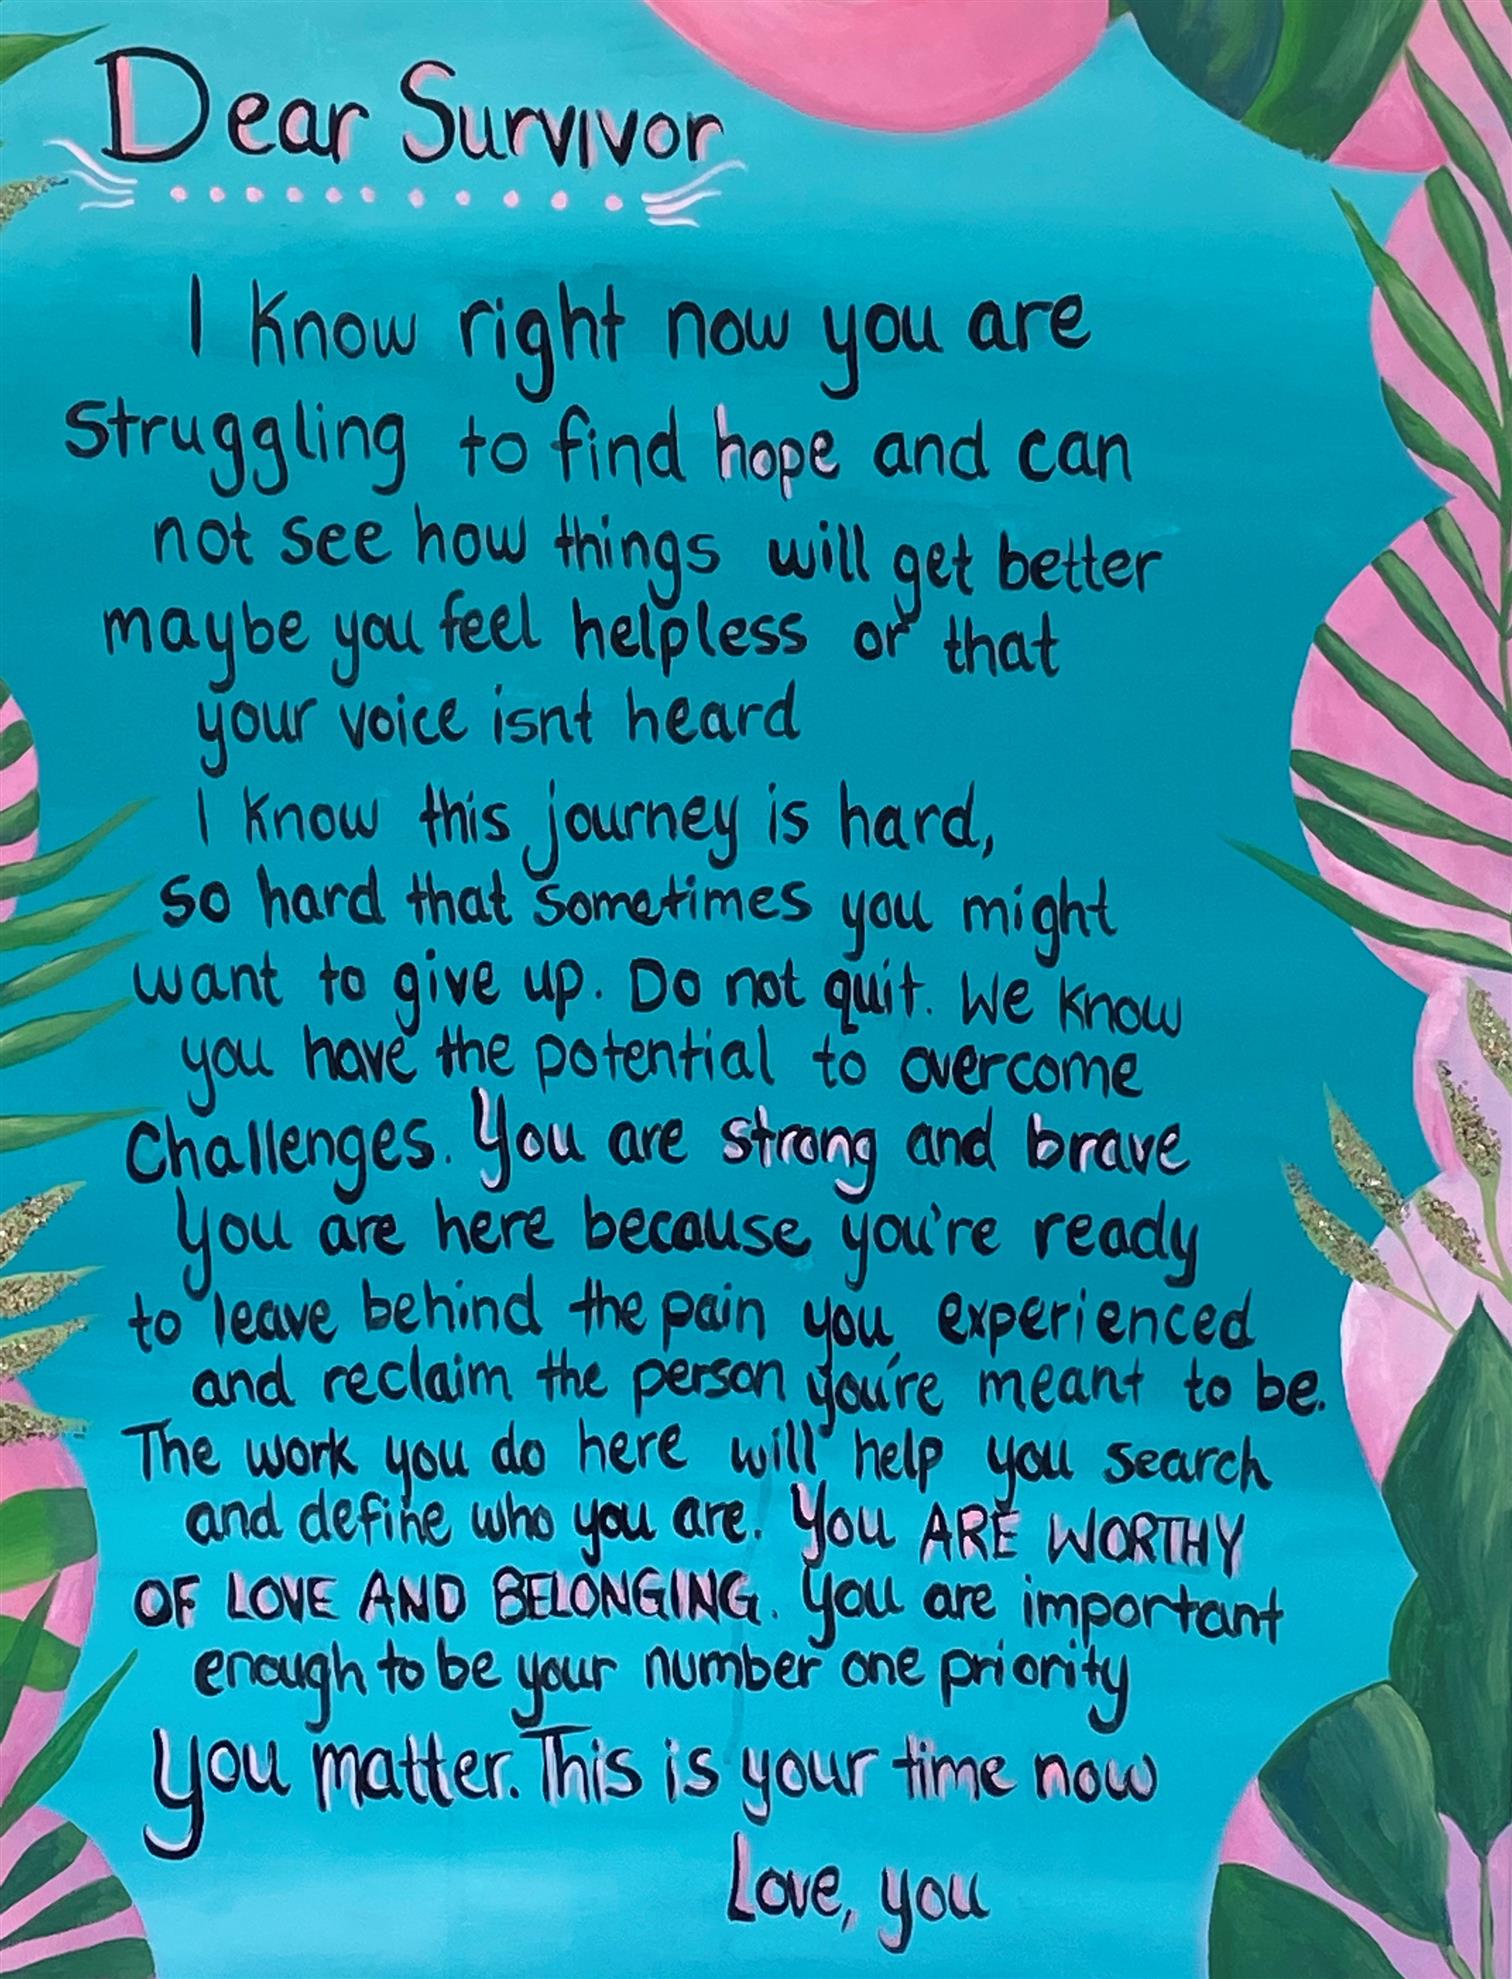 Dear Survivor
I know right now you are
struggling to find hope and can
not see how things will get better
maybe you feel helpless or that
your voice isnt heard
I know this journey is hard,
so hard that sometimes you might
want to give up. Do not quit. We know
you have the potential to overcome
challenges. You are strong and brave
You are here because you're ready
to leave behind the pain you experienced
and reclaim the person you're meant to be.
The work you do here will help you search
and define who you are. You ARE WORTHY
OF LOVE AND BELONGING. You are important
enough to be your number one priority
You matter. This is your time now
Love, you